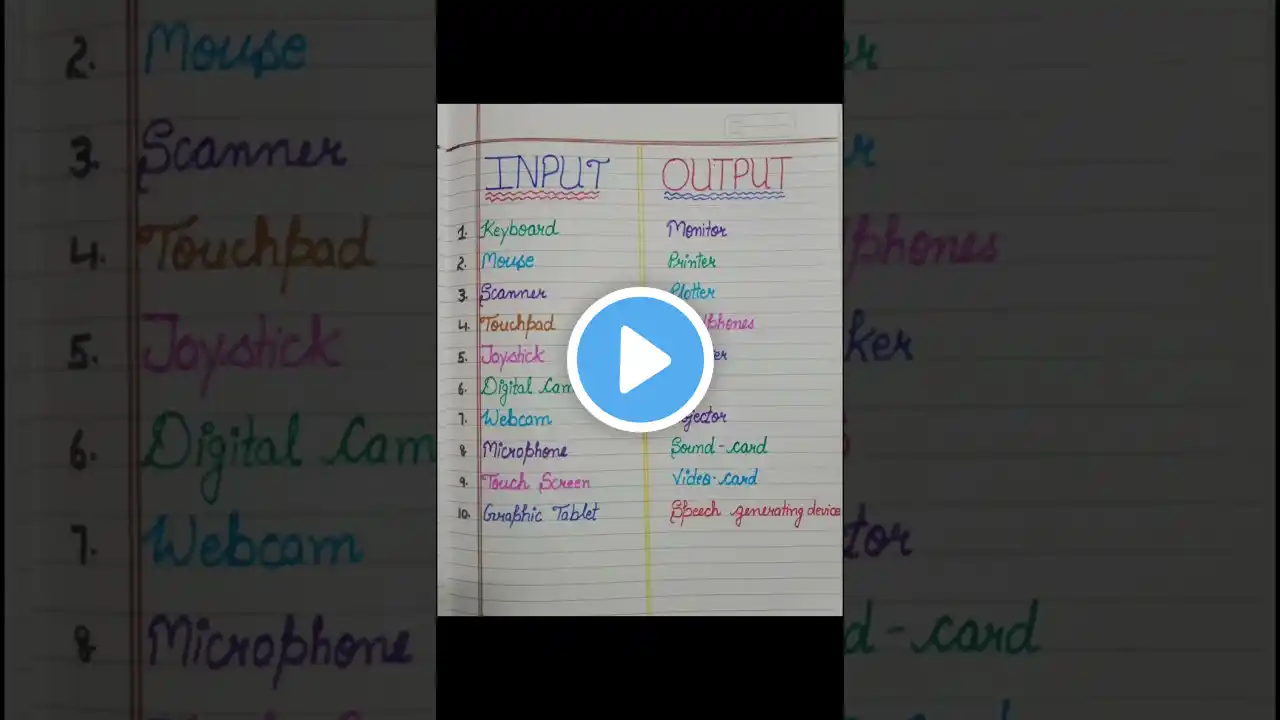 INPUT OUTPUT
1. Keyboard Monitor
2. Mouse Printer
3. Scanner Plotter
4. Touchpad
5. Joystick
6. Digital Cam
7. Webcam
8. Microphone Sound-card
9. Touch Screen Video-card
10. Graphic Tablet Speech generating device